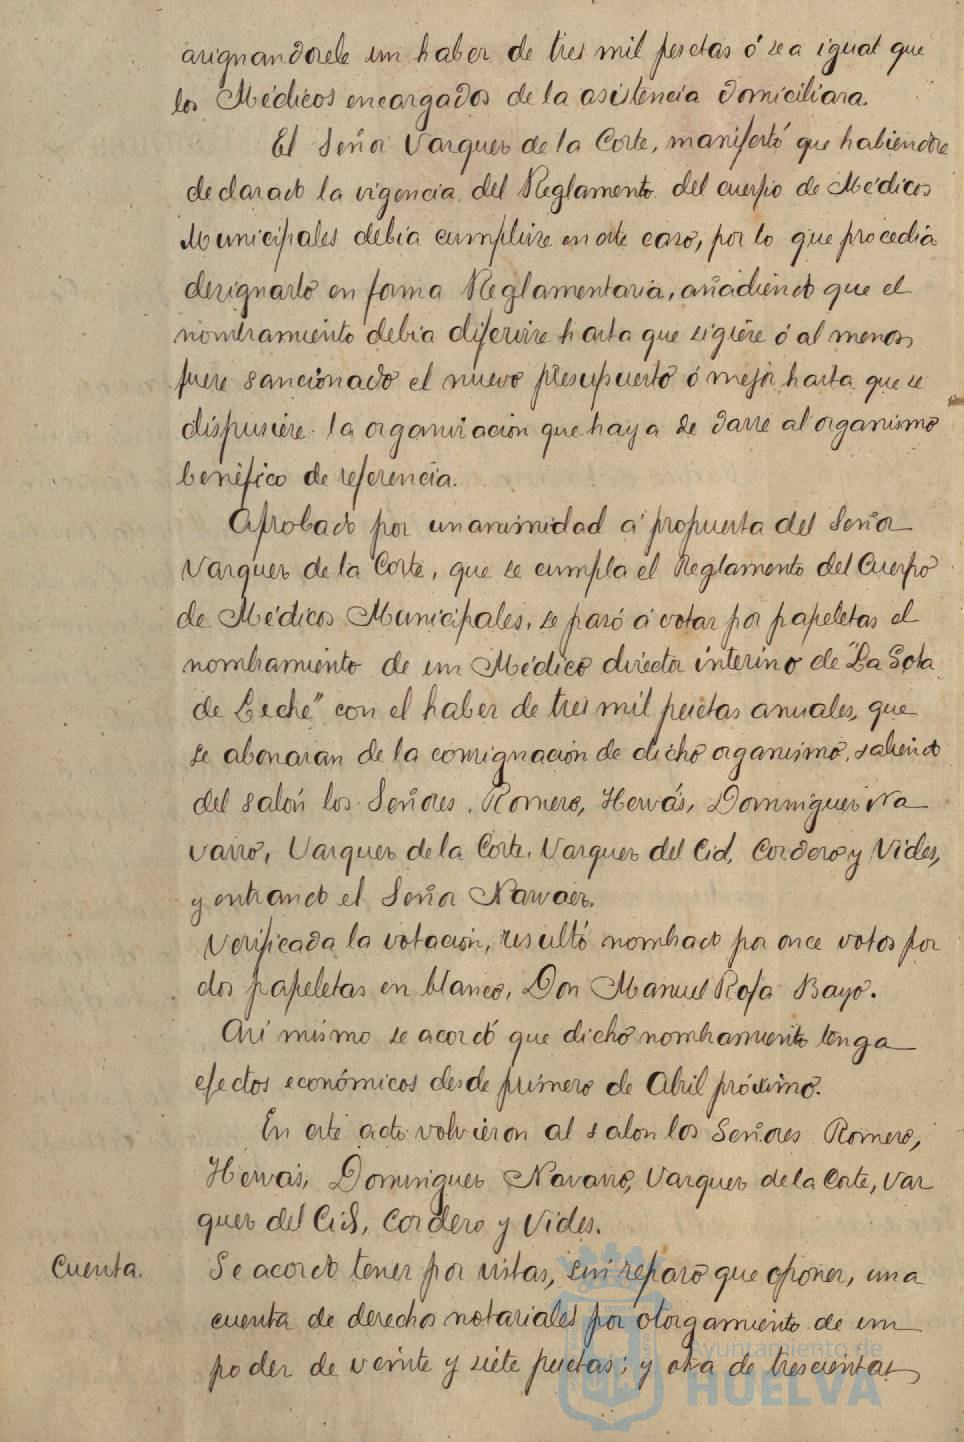 asignandosele un haber de tres mil pesetas ó sea igual que
los Médicos encargados de la asistencia domiciliara.
El Señor Vazquez de la Corte, manifestó que habiendose
declarado la vigencia del Reglamento del cuerpo de Médicos
Municipales debia cumplirse en este caso, por lo que procedia
designarlo en forma Reglamentaria, añadiendo que el
nombramiento debia diferirse hasta que rigiere ó al menos
fuere sancionado el nuevo presupuesto ó mejor hasta que se
dispusiere la organización que haya de darse al organismo
benéfico de referencia.
Aprobado por unanimidad á propuesta del Señor
Vazquez de la Corte, que se cumpla el Reglamento del Cuerpo
de Médicos Municipales, se pasó á votar por papeletas el
nombramiento de un Médico director interino de "La Gota
de Leche" con el haber de tres mil pesetas anuales, que
se abonaran de la consignación de dicho organismo, saliendo
del salón los Señores, Romero, Hervás, Dominguez Na
varro, Vazquez de la Corte, Vazquez del Cid, Cordero y Vides,
y entrando el Señor Narvaez.
Verificada la votación, resultó nombrado por once votos por
dos papeletas en blanco, Don Manuel Rofa Bayo.
Asi mismo se acordó que dicho nombramiento tenga
efectos económicos desde primero de Abril próximo.
En este acto volvieron al salon los Señores Romero,
Hervás, Dominguez Navarro, Vazquez de la Corte, Vaz
quez del Cid, Cordero y Vides.
Cuenta. Se acordó tener por vistas, sin reparo que oponer, una
cuenta de derechos notariales por otorgamiento de un
poder de veinte y siete pesetas; y otra de trescientas
Ayuntamiento de
HUELVA